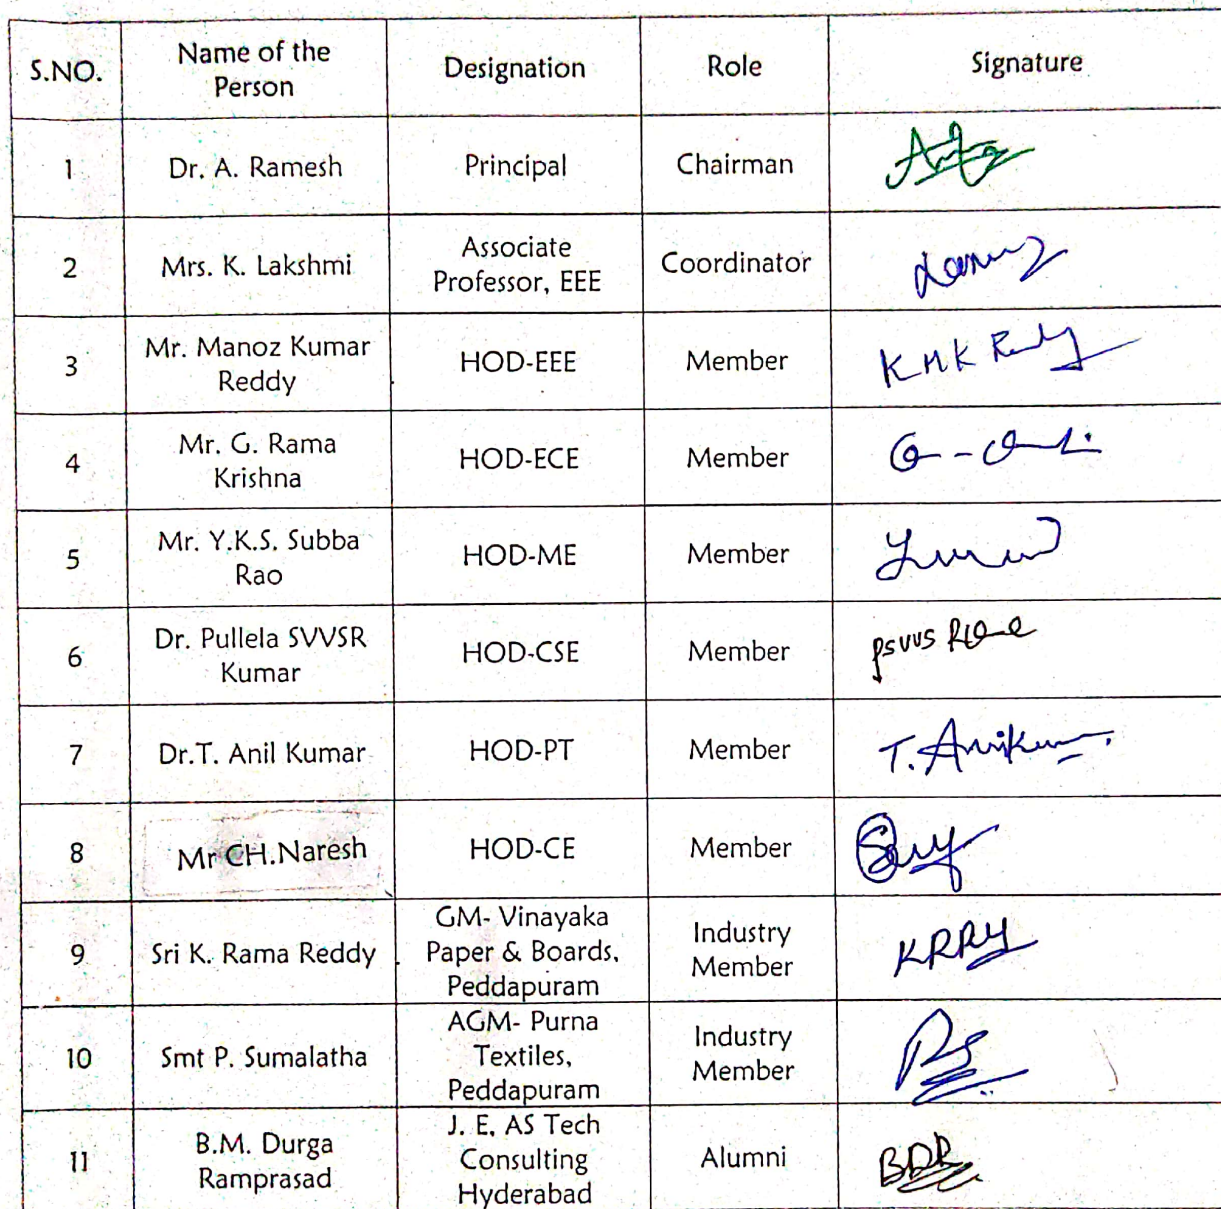 S.NO. Name of the Person Designation Role Signature
1 Dr. A. Ramesh Principal Chairman
2 Mrs. K. Lakshmi Associate Professor, EEE Coordinator
3 Mr. Manoz Kumar Reddy HOD-EEE Member K M K Reddy
4 Mr. G. Rama Krishna HOD-ECE Member
5 Mr. Y.K.S. Subba Rao HOD-ME Member
6 Dr. Pullela SVVSR Kumar HOD-CSE Member
7 Dr.T. Anil Kumar HOD-PT Member T. Anilkumar
8 Mr CH.Naresh HOD-CE Member
9 Sri K. Rama Reddy GM- Vinayaka Paper & Boards, Peddapuram Industry Member KRRy
10 Smt P. Sumalatha AGM- Purna Textiles, Peddapuram Industry Member
11 B.M. Durga Ramprasad J. E, AS Tech Consulting Hyderabad Alumni BDR